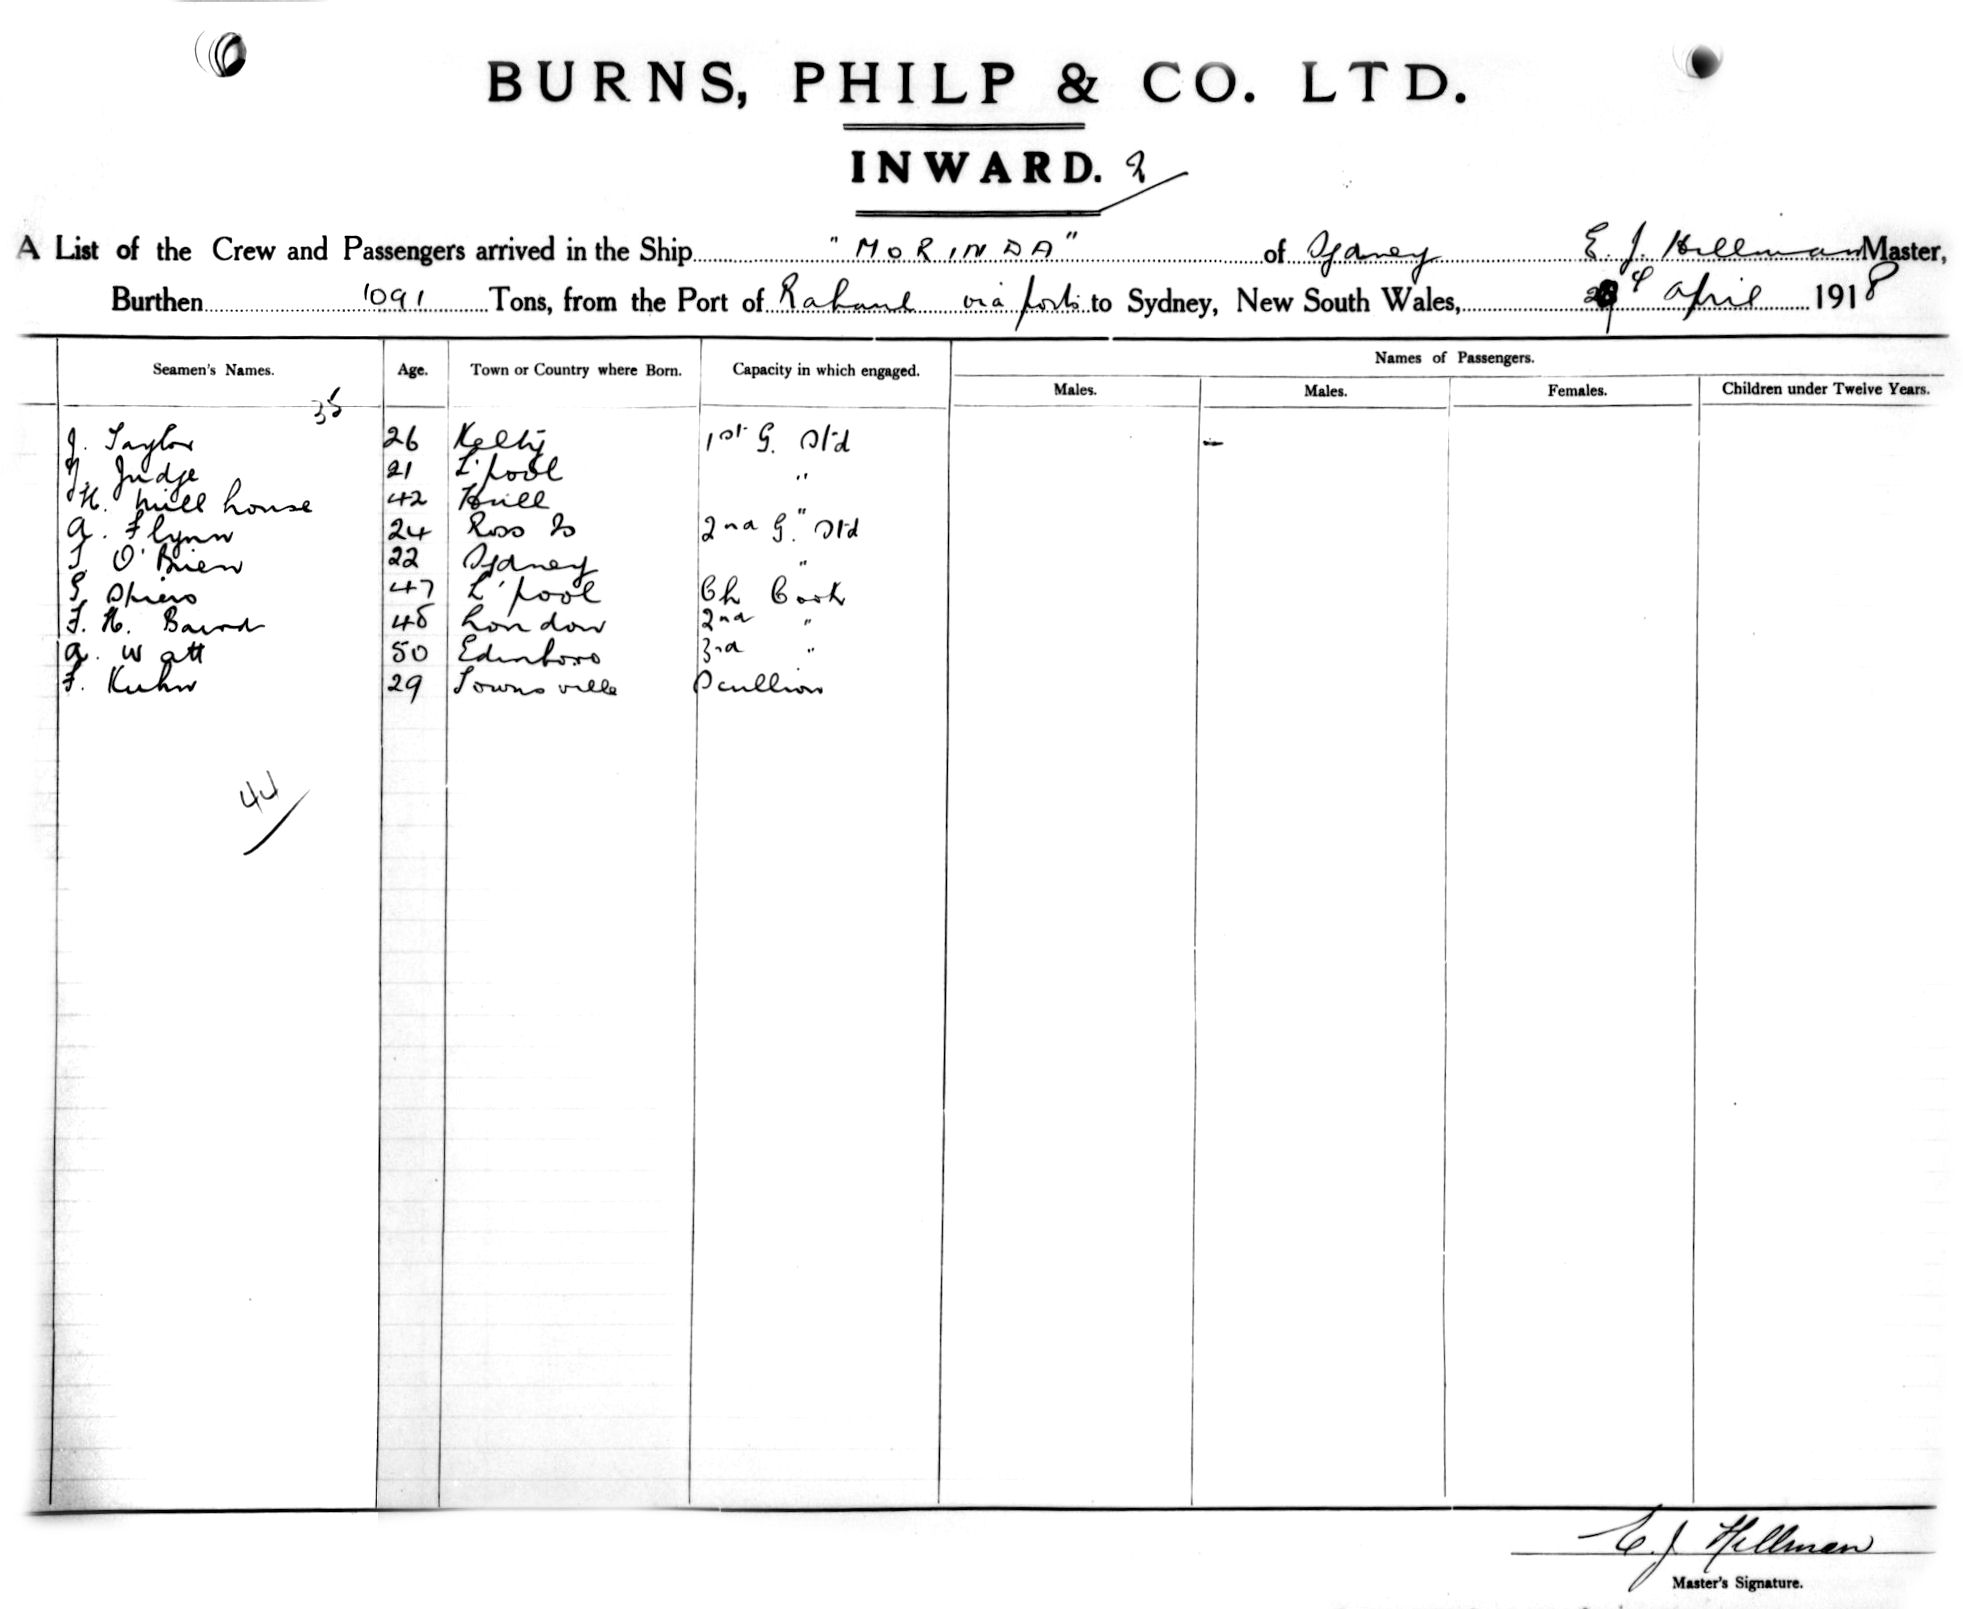 BURNS, PHILP & CO. LTD.
INWARD. 2
A List of the Crew and Passengers arrived in the Ship "MORINDA" of Sydney E. J. Hillman Master,
Burthen 1091 Tons, from the Port of Rabaul via ports to Sydney, New South Wales, April 1918
Seamen's Names. Age. Town or Country where Born. Capacity in which engaged. Names of Passengers.
Males. Males. Females. Children under Twelve Years.
35
J. Taylor 26 Kelty 1st G. Std
Judge 21 L'pool "
H. Mill house 42 Hull "
A. Flynn 24 Ross Is 2nd G. Std
T. O'Brien 22 Sydney "
G Spiers 47 L'pool Ch Cook
F. H. Baird London 2nd "
A. Watt 50 Edinboro 3rd "
F. Kuhn 29 Townsville Scullion
44
E. J. Hillman
Master's Signature.